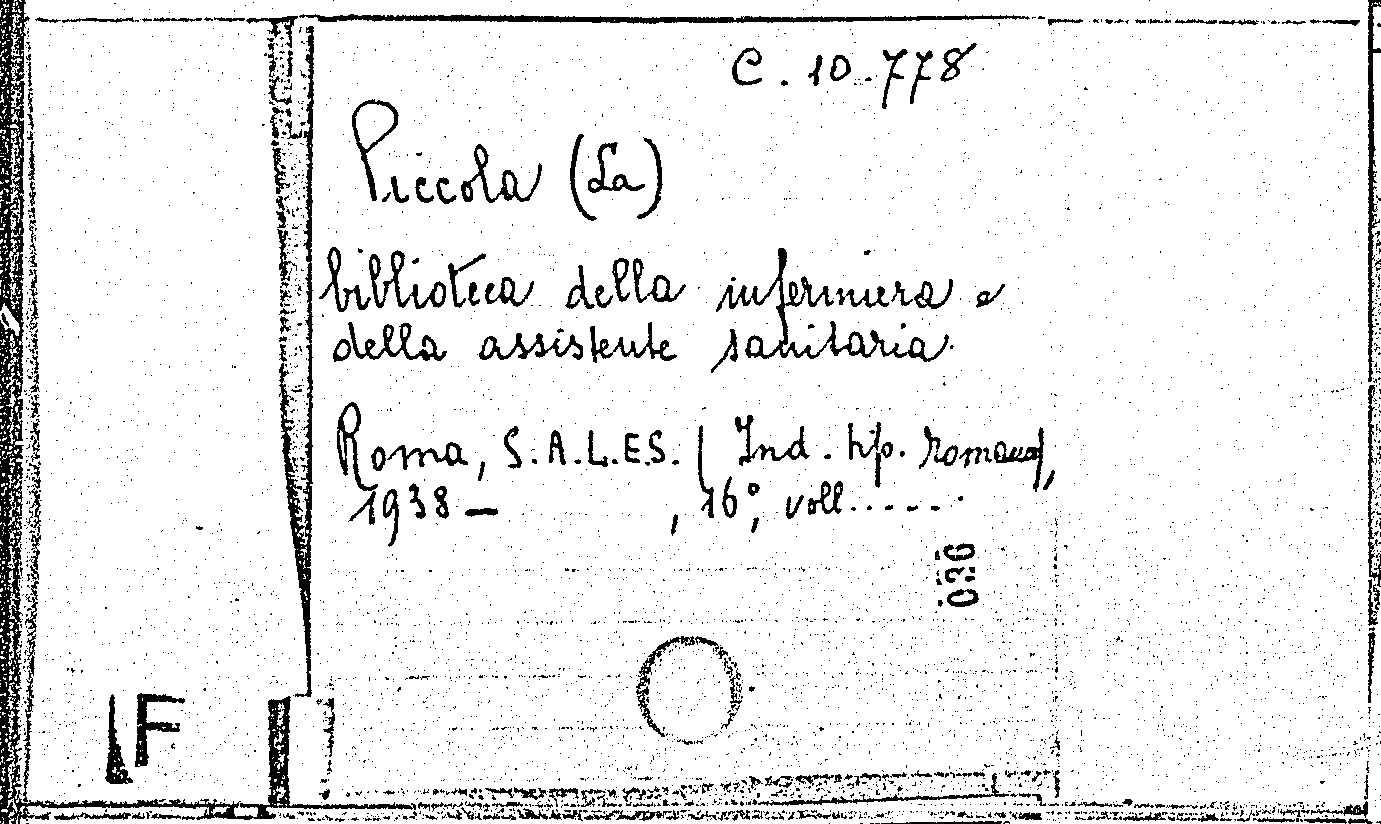 C. 10.778
Piccola (La)
biblioteca della infermiera e
della assistente sanitaria.
Roma, S.A.L.E.S. (Ind. tip. romana),
1938 — , 16°, voll......
036
F